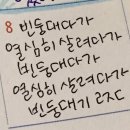 8 빈둥대다가
열심히 살려다가
빈둥대다가
열심히 살려다가
빈둥대기 근ㅈ